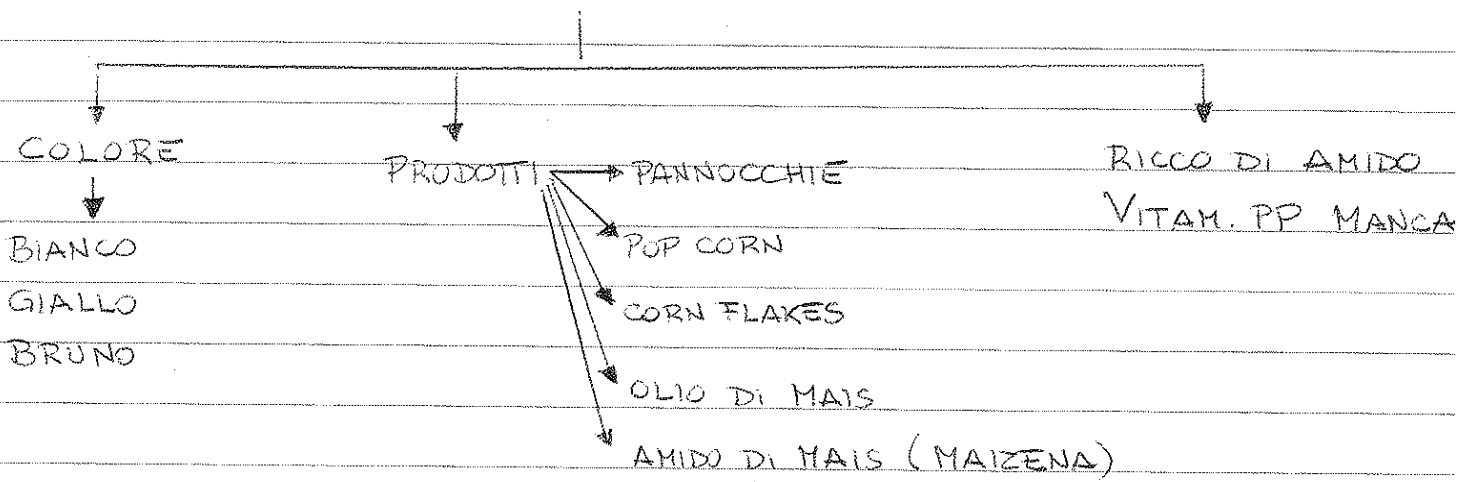 COLORE
BIANCO
GIALLO
BRUNO
PRODOTTI
PANNOCCHIE
POP CORN
CORN FLAKES
OLIO DI MAIS
AMIDO DI MAIS (MAIZENA)
RICCO DI AMIDO
VITAM. PP MANCA